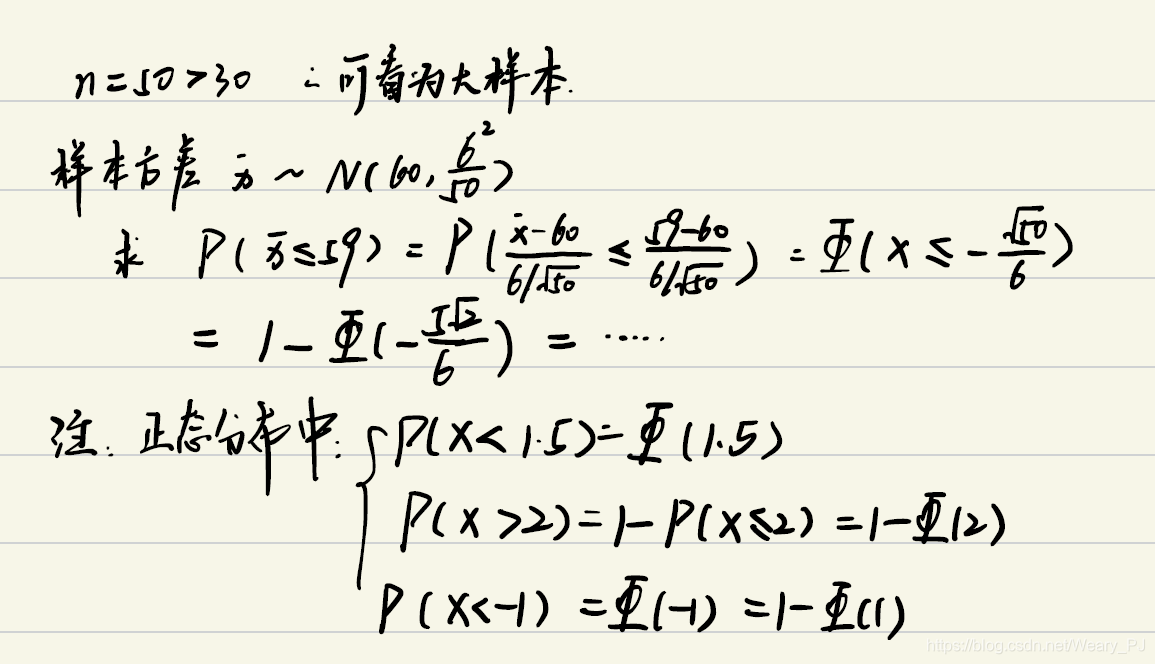 n=50>30 ∴可看为大样本.
样本方差 x̄ ~ N(60, 6²/50)
求 P(x̄≤59) = P(x̄-60/6/√50 ≤ 59-60/6/√50) = Φ(X ≤ -√50/6)
= 1-Φ(-5√2/6) = ……
注: 正态分布中: { P(X<1.5)=Φ(1.5)
P(X>2)=1-P(X≤2)=1-Φ(2)
P(X<-1)=Φ(-1)=1-Φ(1)
https://blog.csdn.net/Weary_PJ